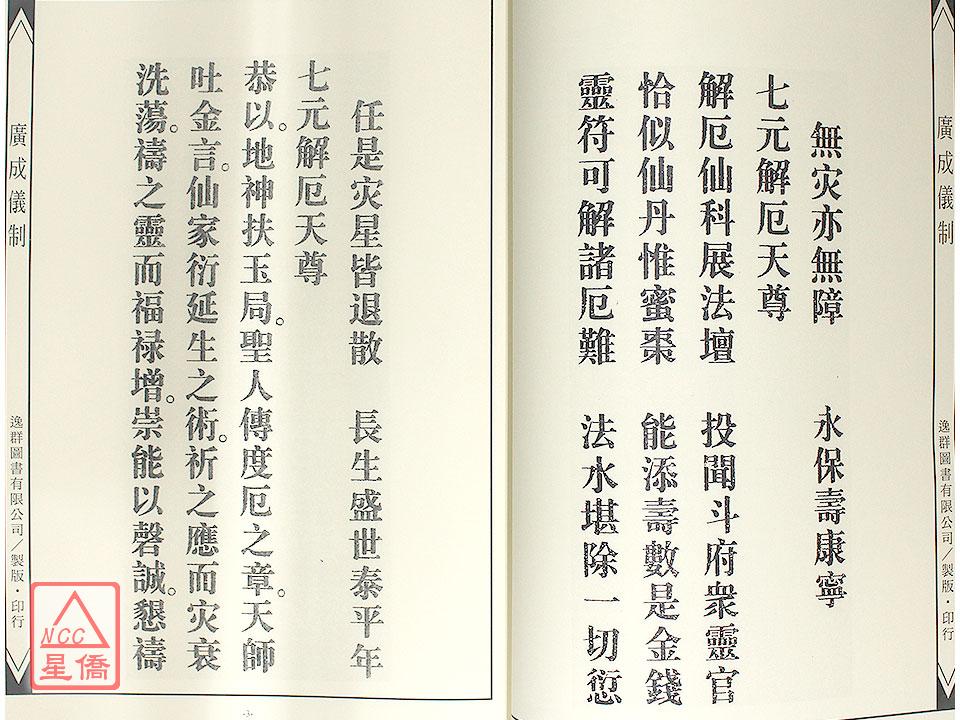 廣成儀制
逸群圖書有限公司／製版・印行
無灾亦無障　永保壽康寧
七元解厄天尊
解厄仙科展法壇　投聞斗府衆靈官
恰似仙丹惟蜜棗　能添壽數是金錢
靈符可解諸厄難　法水堪除一切愆
任是灾星皆退散　長生盛世泰平年
七元解厄天尊
恭以。地神扶玉局。聖人傳度厄之章。天師
吐金言。仙家衍延生之術。祈之應而灾衰
洗蕩。禱之靈而福禄增。崇能以磬誠。懇禱
廣成儀制
逸群圖書有限公司／製版・印行
·3·
NCC
星僑